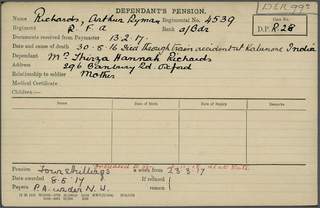 DEPENDANT'S PENSION.
DER 992
Name Richards, Arthur Dymas Regimental No. 4539
Case No.
Regiment R. F. A a/Bdr D.P. R 28
Documents received from Paymaster 13.2.17.
Date and cause of death 30-8-16 Died through train accident at Kalanore India
Dependant Mrs Thirza Hannah Richards
Address 296 Banbury Rd. Oxford
Relationship to soldier Mother
Medical Certificate
Children:—
Pension Four shillings a week from 23.3.17
Date awarded 8-5-17 If reduced
Papers P.A. under N.W.